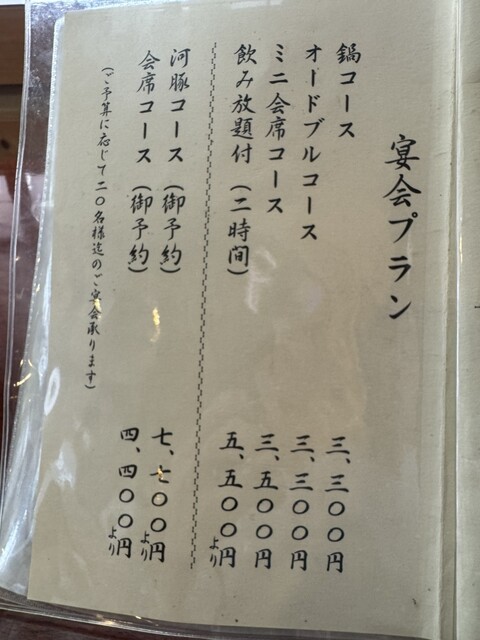 宴会プラン
鍋コース 三、三〇〇円
オードブルコース 三、三〇〇円
ミニ会席コース 三、五〇〇円
飲み放題付（二時間） 五、五〇〇円より
河豚コース（御予約） 七、七〇〇円より
会席コース（御予約） 四、四〇〇円より
（ご予算に応じて二〇名様迄のご宴会承ります）